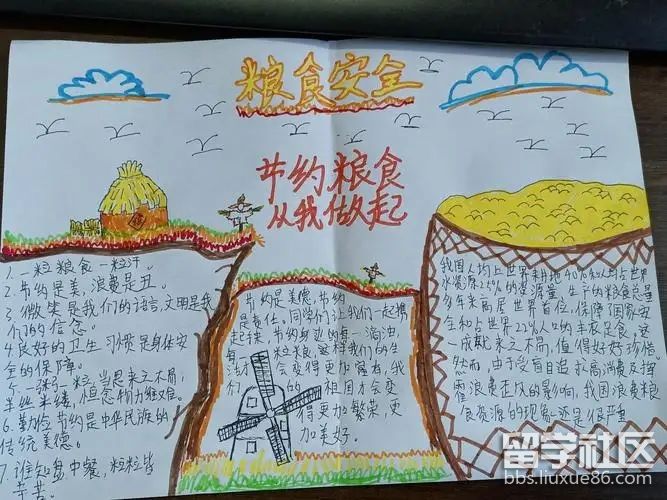 粮食安全
节约粮食
从我做起
1.一粒粮食一粒汗。
2.节约是美,浪费是丑。
3.微笑是我们的语言,文明是我
们的信念。
4.良好的卫生习惯是身体安
全的保障。
5.一粥一粒,当思来之不易,
半丝半缕,恒念物力维艰。
6.勤俭节约是中华民族的
传统美德。
7.谁知盘中餐,粒粒皆
辛苦。
节约是美德,节约
是责任,同学们让我们一起携
起手来,节约身边的每一滴油
每一粒粮,这样我们的生
活才会变得更加富有,我
们的祖国才会变
得更加繁荣,更
加美好。
我国人均占世界耕地40%和占世界
水资源25%的资源量,生产的粮食总量
多年来高居世界首位,保障了国家安
全和占世界22%人口的丰衣足食,这
一成就来之不易,值得好好珍惜。
然而,由于受盲目追求高消费及挥
霍浪费歪风的影响,我国浪费粮
食资源的现象还是很严重
留学社区
bbs.liuxue86.com